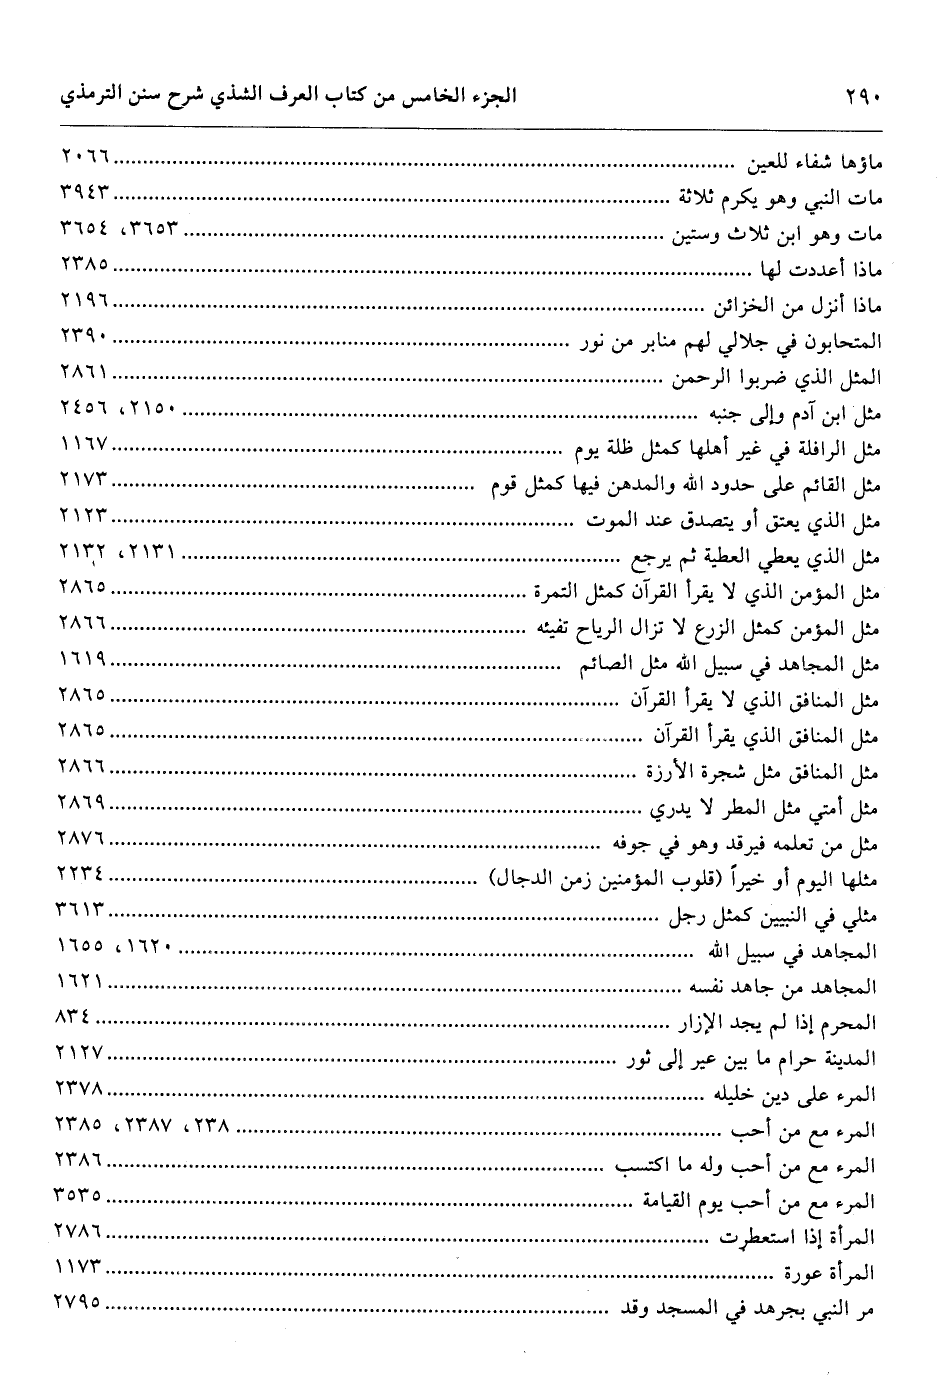 ٢٩٠ الجزء الخامس من كتاب العرف الشذي شرح سنن الترمذي
ماؤها شفاء للعين ..... ٢٠٦٦
مات النبي وهو يكرم ثلاثة ..... ٣٩٤٣
مات وهو ابن ثلاث وستين ..... ٣٦٥٣، ٣٦٥٤
ماذا أعددت لها ..... ٢٣٨٥
ماذا أنزل من الخزائن ..... ٢١٩٦
المتحابون في جلالي لهم منابر من نور ..... ٢٣٩٠
المثل الذي ضربوا الرحمن ..... ٢٨٦١
مثل ابن آدم وإلى جنبه ..... ٢١٥٠، ٢٤٥٦
مثل الرافلة في غير أهلها كمثل ظلة يوم ..... ١١٦٧
مثل القائم على حدود الله والمدهن فيها كمثل قوم ..... ٢١٧٣
مثل الذي يعتق أو يتصدق عند الموت ..... ٢١٢٣
مثل الذي يعطي العطية ثم يرجع ..... ٢١٣١، ٢١٣٢
مثل المؤمن الذي لا يقرأ القرآن كمثل التمرة ..... ٢٨٦٥
مثل المؤمن كمثل الزرع لا تزال الرياح تفيئه ..... ٢٨٦٦
مثل المجاهد في سبيل الله مثل الصائم ..... ١٦١٩
مثل المنافق الذي لا يقرأ القرآن ..... ٢٨٦٥
مثل المنافق الذي يقرأ القرآن ..... ٢٨٦٥
مثل المنافق مثل شجرة الأرزة ..... ٢٨٦٦
مثل أمتي مثل المطر لا يدري ..... ٢٨٦٩
مثل من تعلمه فيرقد وهو في جوفه ..... ٢٨٧٦
مثلها اليوم أو خيراً (قلوب المؤمنين زمن الدجال) ..... ٢٢٣٤
مثلي في النبيين كمثل رجل ..... ٣٦١٣
المجاهد في سبيل الله ..... ١٦٢٠، ١٦٥٥
المجاهد من جاهد نفسه ..... ١٦٢١
المحرم إذا لم يجد الإزار ..... ٨٣٤
المدينة حرام ما بين عير إلى ثور ..... ٢١٢٧
المرء على دين خليله ..... ٢٣٧٨
المرء مع من أحب ..... ٢٣٨، ٢٣٨٧، ٢٣٨٥
المرء مع من أحب وله ما اكتسب ..... ٢٣٨٦
المرء مع من أحب يوم القيامة ..... ٣٥٣٥
المرأة إذا استعطرت ..... ٢٧٨٦
المرأة عورة ..... ١١٧٣
مر النبي بجرهد في المسجد وقد ..... ٢٧٩٥